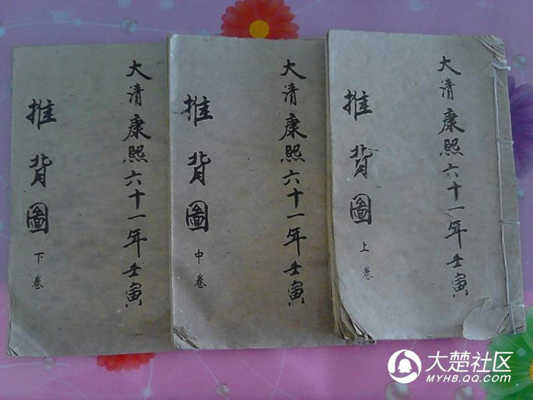 大清康熙六十一年壬寅
推背圖
上卷
大清康熙六十一年壬寅
推背圖
中卷
大清康熙六十一年壬寅
推背圖
下卷
大楚社区
MYHB.QQ.COM